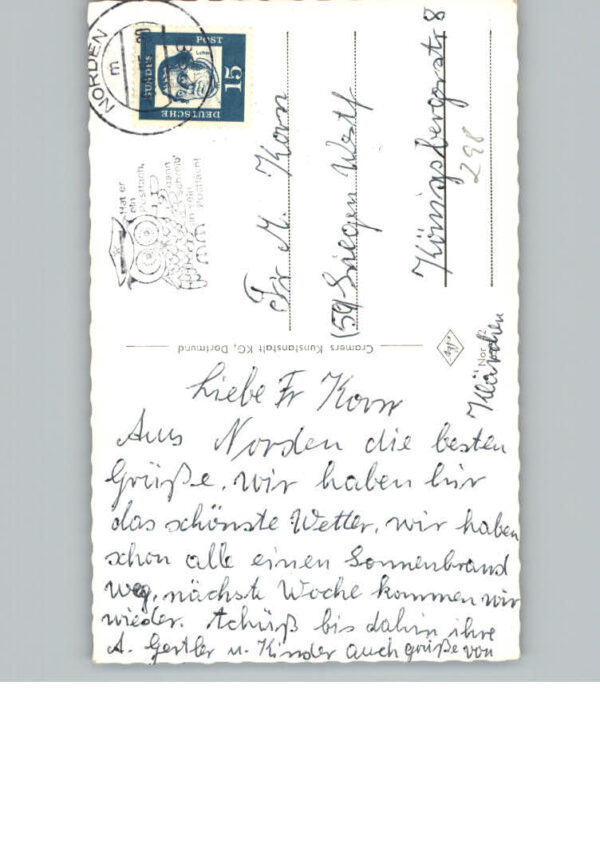 NORDEN
m
DEUTSCHE
BUNDES
POST
15
Hat er
ein
Postfach,
dann
schreib'
Fr M. Korn
(59 Siegen Westf
Königsbergstr 8
298
Cramers Kunstanstalt KG, Dortmund
Nor 2
Liebe Fr Korn
Aus Norden die besten
Grüße, wir haben hir
das schönste Wetter, wir haben
schon alle einen Sonnenbrand
weg, nächste Woche kommen wir
wieder. tchüß bis dahin ihre
A. Gertler u. Kinder auch grüße von
Klärchen